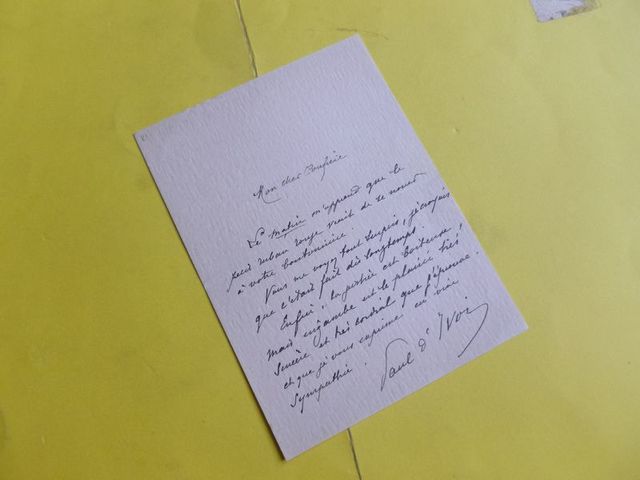 Mon cher Confrère
Le Matin m'apprend que le
petit ruban rouge vient de se nouer
à votre boutonnière.
Vous me voyez tout surpris, j'croyais
que c'était fait dès longtemps.
Enfin! la justice est boiteuse
mais ingambe est le plaisir très
sincère et très cordial que j'éprouve
et que je vous exprime en vive
sympathie.
Paul d'Ivoi